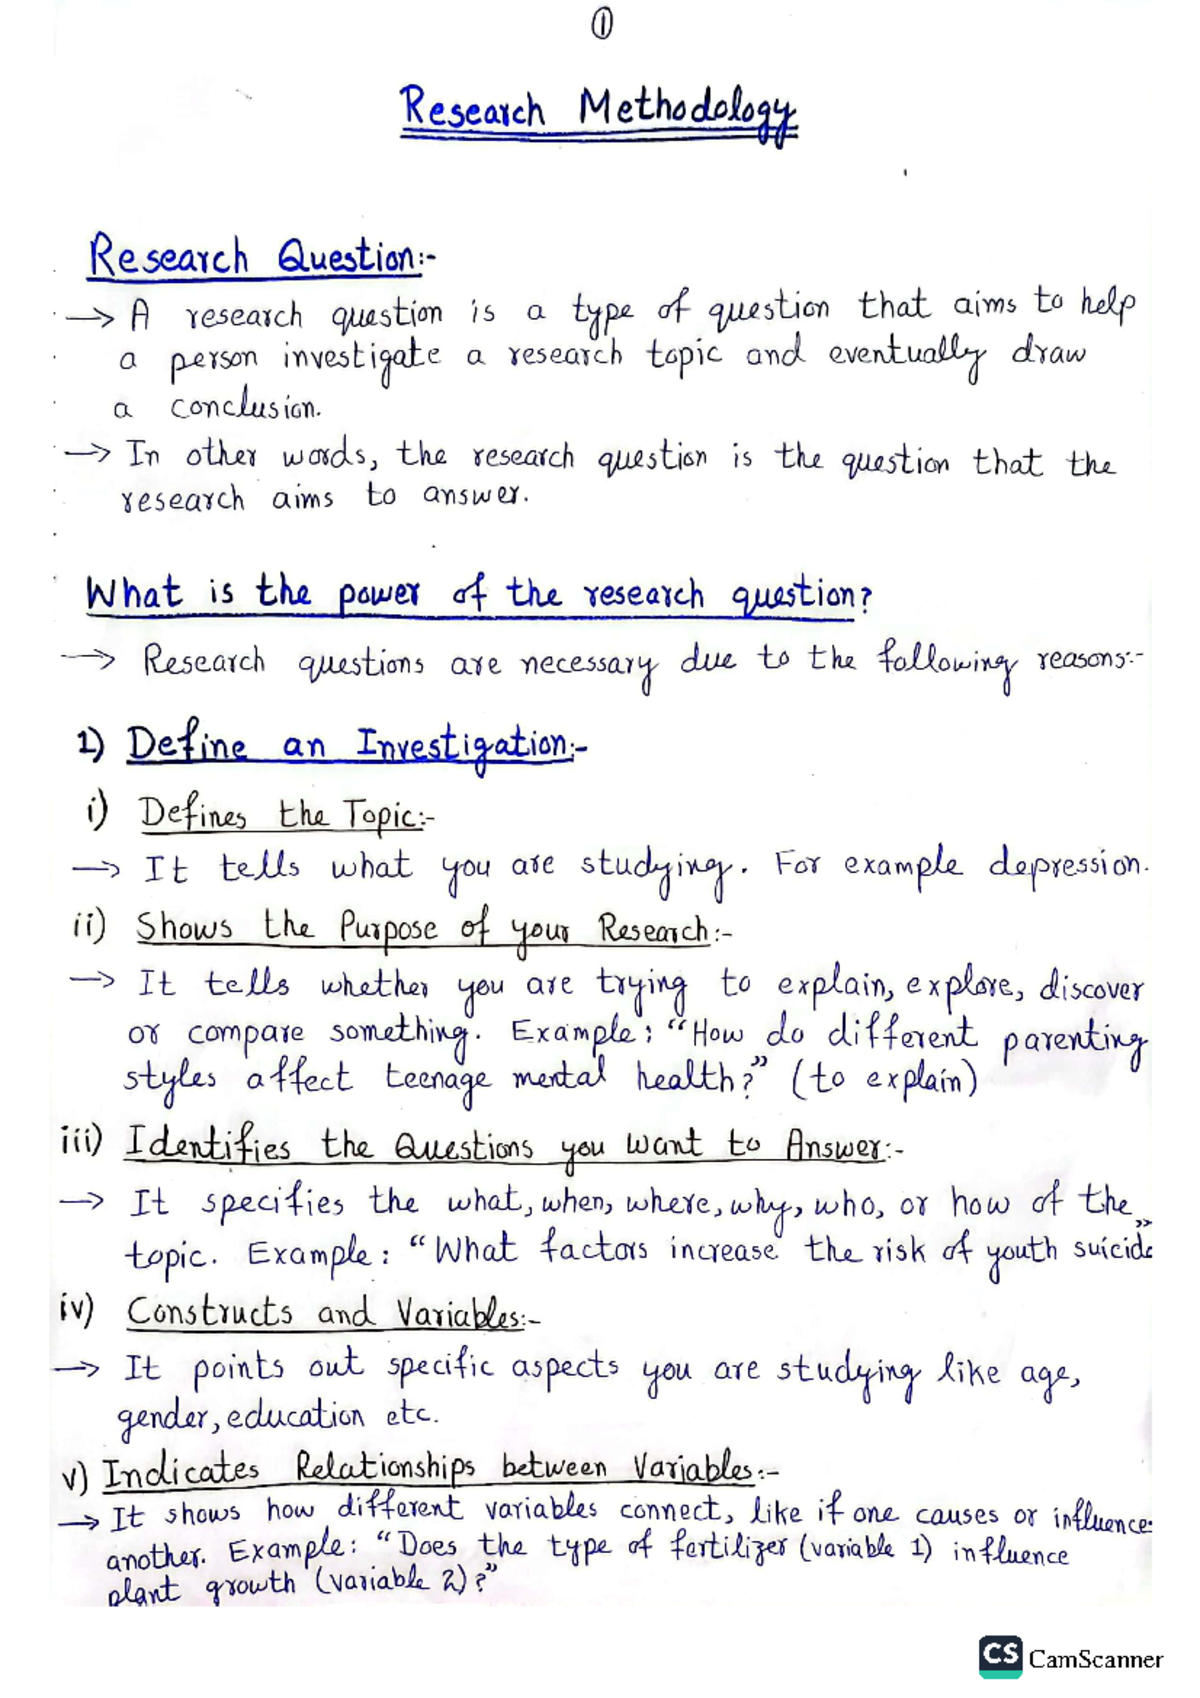 ①
Research Methodology
Research Question:-
→ A research question is a type of question that aims to help
a person investigate a research topic and eventually draw
a conclusion.
→ In other words, the research question is the question that the
research aims to answer.
What is the power of the research question?
→ Research questions are necessary due to the following reasons:-
1) Define an Investigation:-
i) Defines the Topic:-
→ It tells what you are studying. For example depression.
ii) Shows the Purpose of your Research:-
→ It tells whether you are trying to explain, explore, discover
or compare something. Example: “How do different parenting
styles affect teenage mental health?” (to explain)
iii) Identifies the Questions you want to Answer:-
→ It specifies the what, when, where, why, who, or how of the
topic. Example: “What factors increase the risk of youth suicide”
iv) Constructs and Variables:-
→ It points out specific aspects you are studying like age,
gender, education etc.
v) Indicates Relationships between Variables:-
→ It shows how different variables connect, like if one causes or influence
another. Example: “Does the type of fertilizer (variable 1) influence
plant growth (variable 2)?”
CS CamScanner